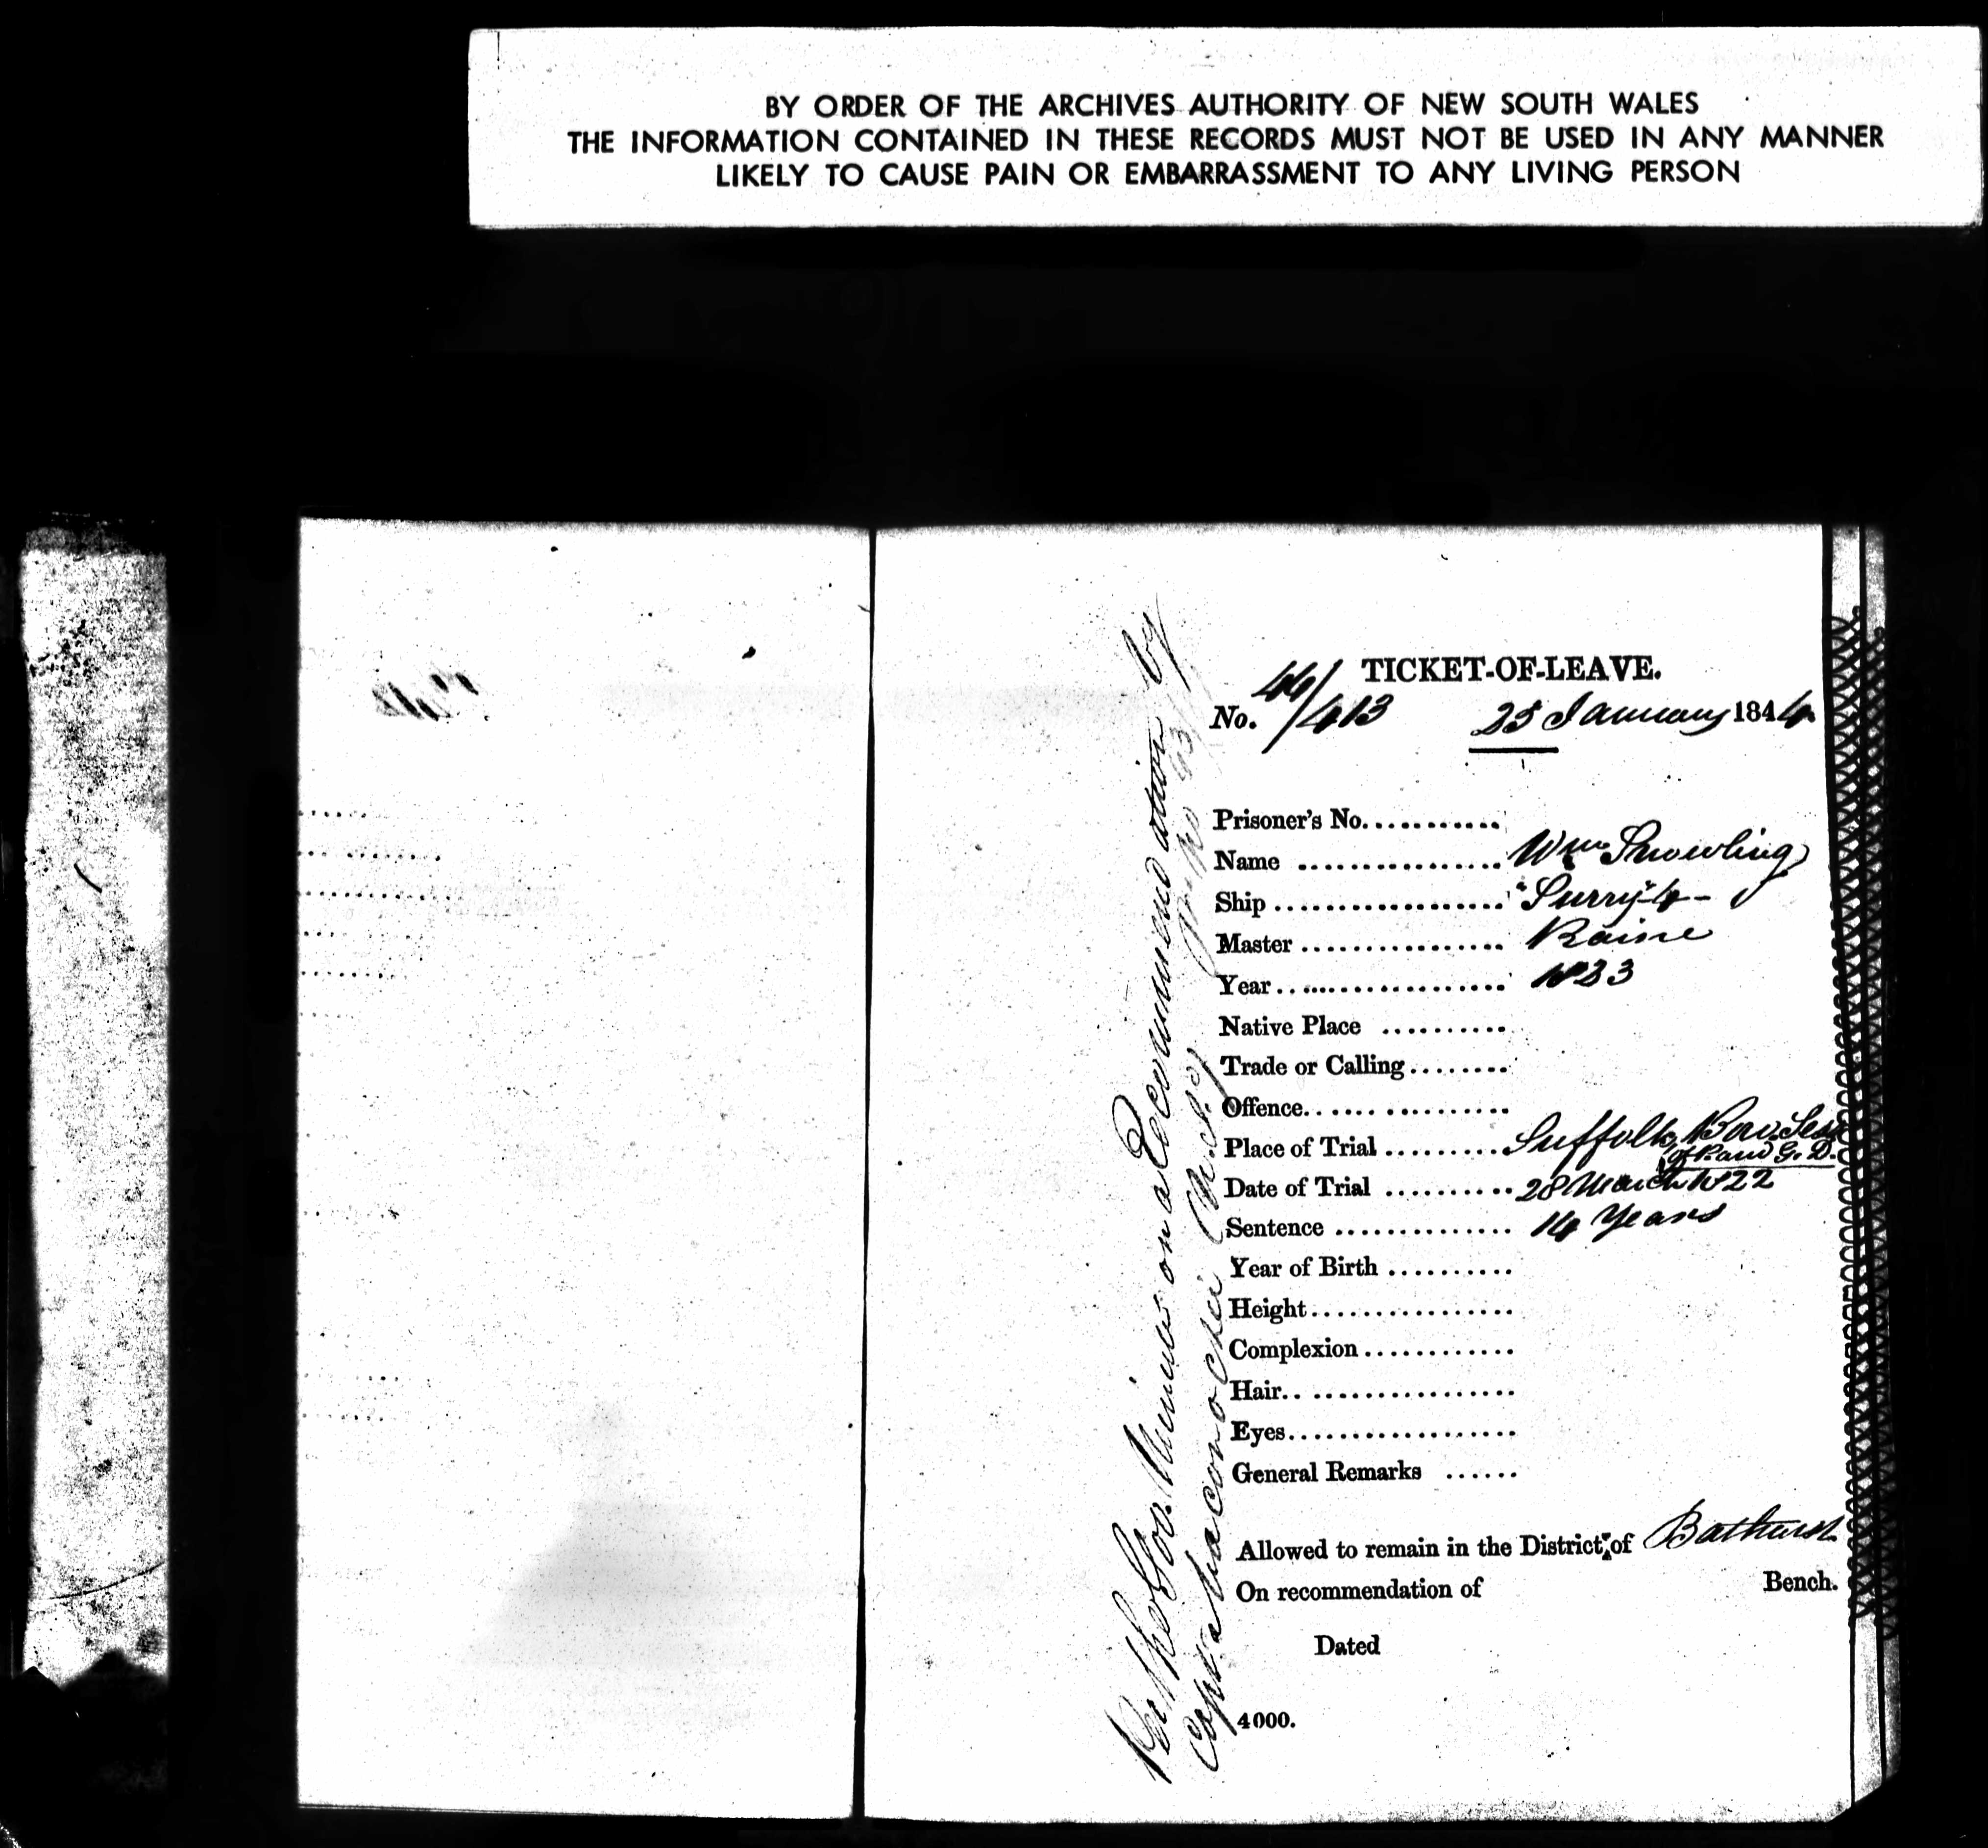 BY ORDER OF THE ARCHIVES AUTHORITY OF NEW SOUTH WALES
THE INFORMATION CONTAINED IN THESE RECORDS MUST NOT BE USED IN ANY MANNER
LIKELY TO CAUSE PAIN OR EMBARRASSMENT TO ANY LIVING PERSON
TICKET-OF-LEAVE.
No. 44/413 25 January 1844
Prisoner's No............
Name ................ Wm Snowling
Ship .................. "Surry" 4 -
Master ................ Raine
Year .................. 1823
Native Place ..........
Trade or Calling........
Offence..................
Place of Trial ......... Suffolk, Boro. Sess
of P. and G. D.
Date of Trial .......... 28 March 1822
Sentence .............. 14 Years
Year of Birth ..........
Height................
Complexion ............
Hair.. .................
Eyes...................
General Remarks ......
Allowed to remain in the District of Bathurst
On recommendation of Bench.
Dated
4000.
Per the Gov. Minute on a Recommendation by
Captn. Maconochie